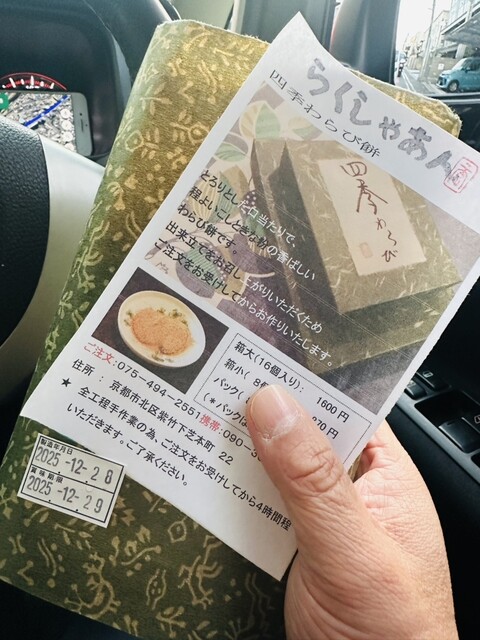 らくしゃあん
四季わらび餅
四季わらび
とろりとした口当たりで、
程よいこしときな粉の香ばしい
わらび餅です。
出来立てをお召し上がりいただくため
ご注文をお受けしてからお作りいたします。
箱大(16個入り): 1600円
箱小(8
パック(
270円
(*パックは
ご注文:075-494-2551 携帯:090-3
住所 : 京都市北区紫竹下芝本町 22
★ 全工程手作業の為、ご注文をお受けしてから4時間程
いただきます。ご了承ください。
製造年月日
2025-12-28
賞味期限
2025-12-29